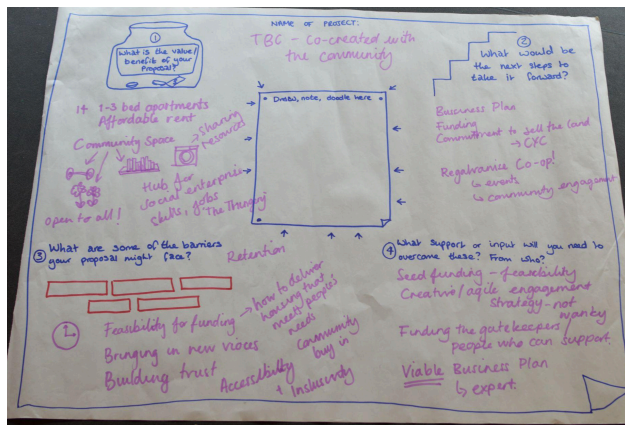 NAME OF PROJECT:
TBC - Co-created with
the Community
①
What is the value/
benefit of your
Proposal?
1+ 1-3 bed apartments
Affordable rent
Community Space
sharing
resources
Hub for
social enterprise
skills, jobs
"The Thingery
open to all!
Draw, note, doodle here
②
What would be
the next steps to
take it forward?
Bussiness Plan
Funding
Committment to sell the land
→ CYC
Regalvanise Co-op!
↳ events
↳ community engagment
③ What are some of the barriers
your proposal might face?
Retention
Feasibility for funding
→ how to deliver
housing that
meets peoples
needs
Bringing in new vioces
Building trust
Community
buy in
Accessibility
+ Inclusivity
④ What support or input will you need to
overcome these? From who?
Seed funding - feasibility
Creative/agile engagement
strategy - not
wanky
Finding the gatekeepers/
people who can support.
Viable Business Plan
↳ expert.